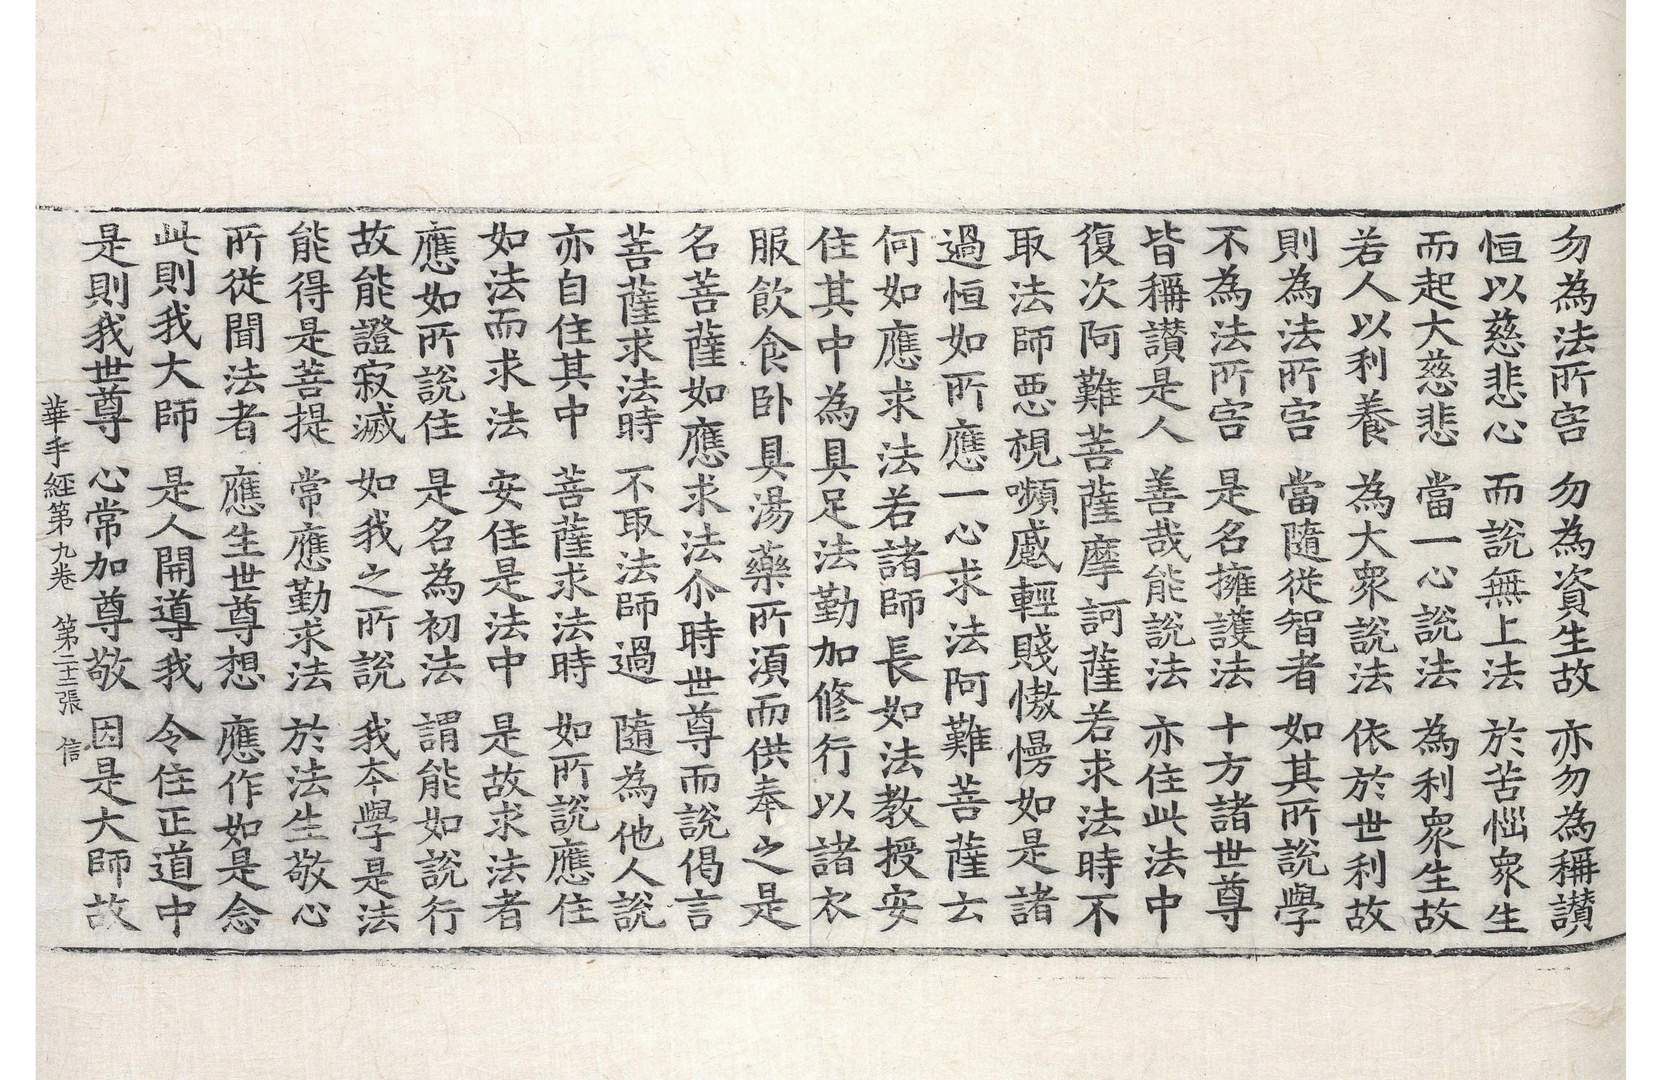 勿為法所害 勿為資生故 亦勿為稱讃
恒以慈悲心 而說無上法 於苦惱衆生
而起大慈悲 當一心說法 為利衆生故
若人以利養 為大衆說法 依於世利故
則為法所害 當隨從智者 如其所說學
不為法所害 是名擁護法 十方諸世尊
皆稱讃是人 善哉能說法 亦住此法中
復次阿難菩薩摩訶薩若求法時不
取法師惡視嚬蹙輕賤憿慢如是諸
過恒如所應一心求法阿難菩薩云
何如應求法若諸師長如法教授安
住其中為具足法勤加修行以諸衣
服飲食卧具湯藥所湏而供奉之是
名菩薩如應求法尒時世尊而說偈言
菩薩求法時 不取法師過 隨為他人說
亦自住其中 菩薩求法時 如所說應住
如法而求法 安住是法中 是故求法者
應如所說住 是名為初法 謂能如說行
故能證寂滅 如我之所說 我夲學是法
能得是菩提 常應勤求法 於法生敬心
所從聞法者 應生世尊想 應作如是念
此則我大師 是人開導我 令住正道中
是則我世尊 心常加尊敬 因是大師故
華手経第九卷 第二十二張 信